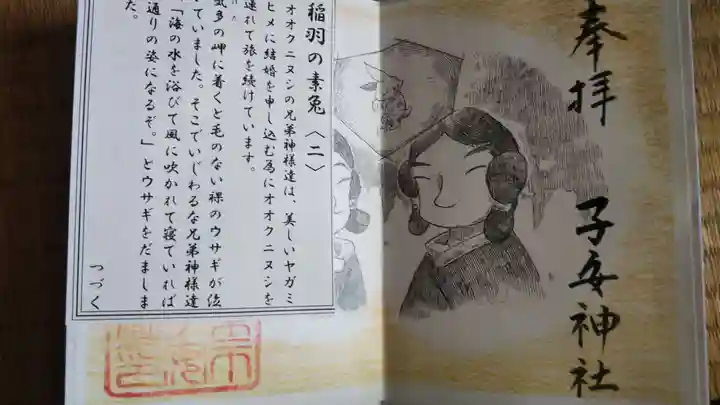 奉拝
子安神社
稲羽の素兎〈二〉
オオクニヌシの兄弟神様達は、美しいヤガミ
ヒメに結婚を申し込む為にオオクニヌシを
連れて旅を続けています。
気多の岬に着くと毛のない裸のウサギが泣
いていました。そこでいじわるな兄弟神様達
「海の水を浴びて風に吹かれて寝ていれば
通りの姿になるぞ。」とウサギをだましま
た。
つづく